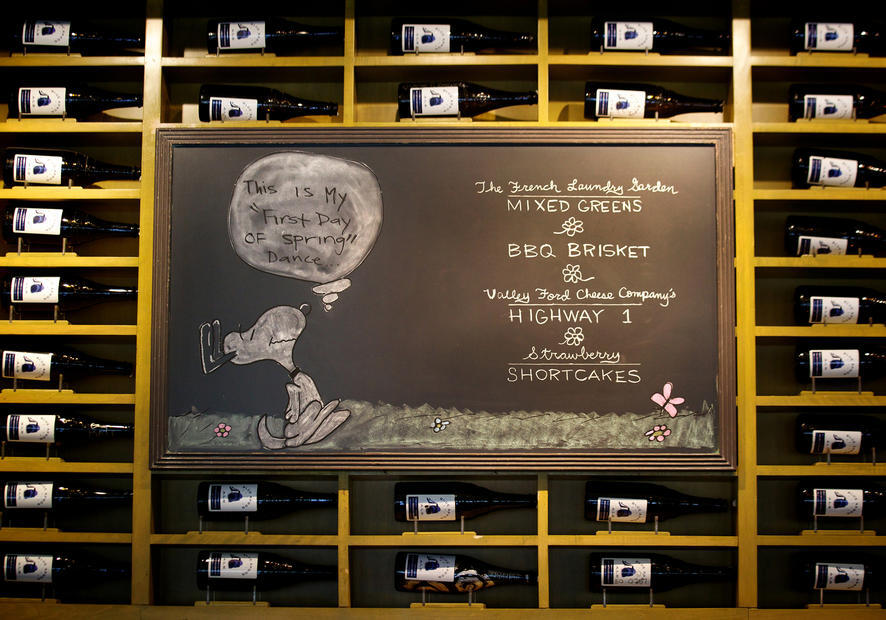 This is My
"First Day
of spring"
Dance...
The French Laundry Garden
MIXED GREENS
BBQ BRISKET
Valley Ford Cheese Company's
HIGHWAY 1
Strawberry
SHORTCAKES